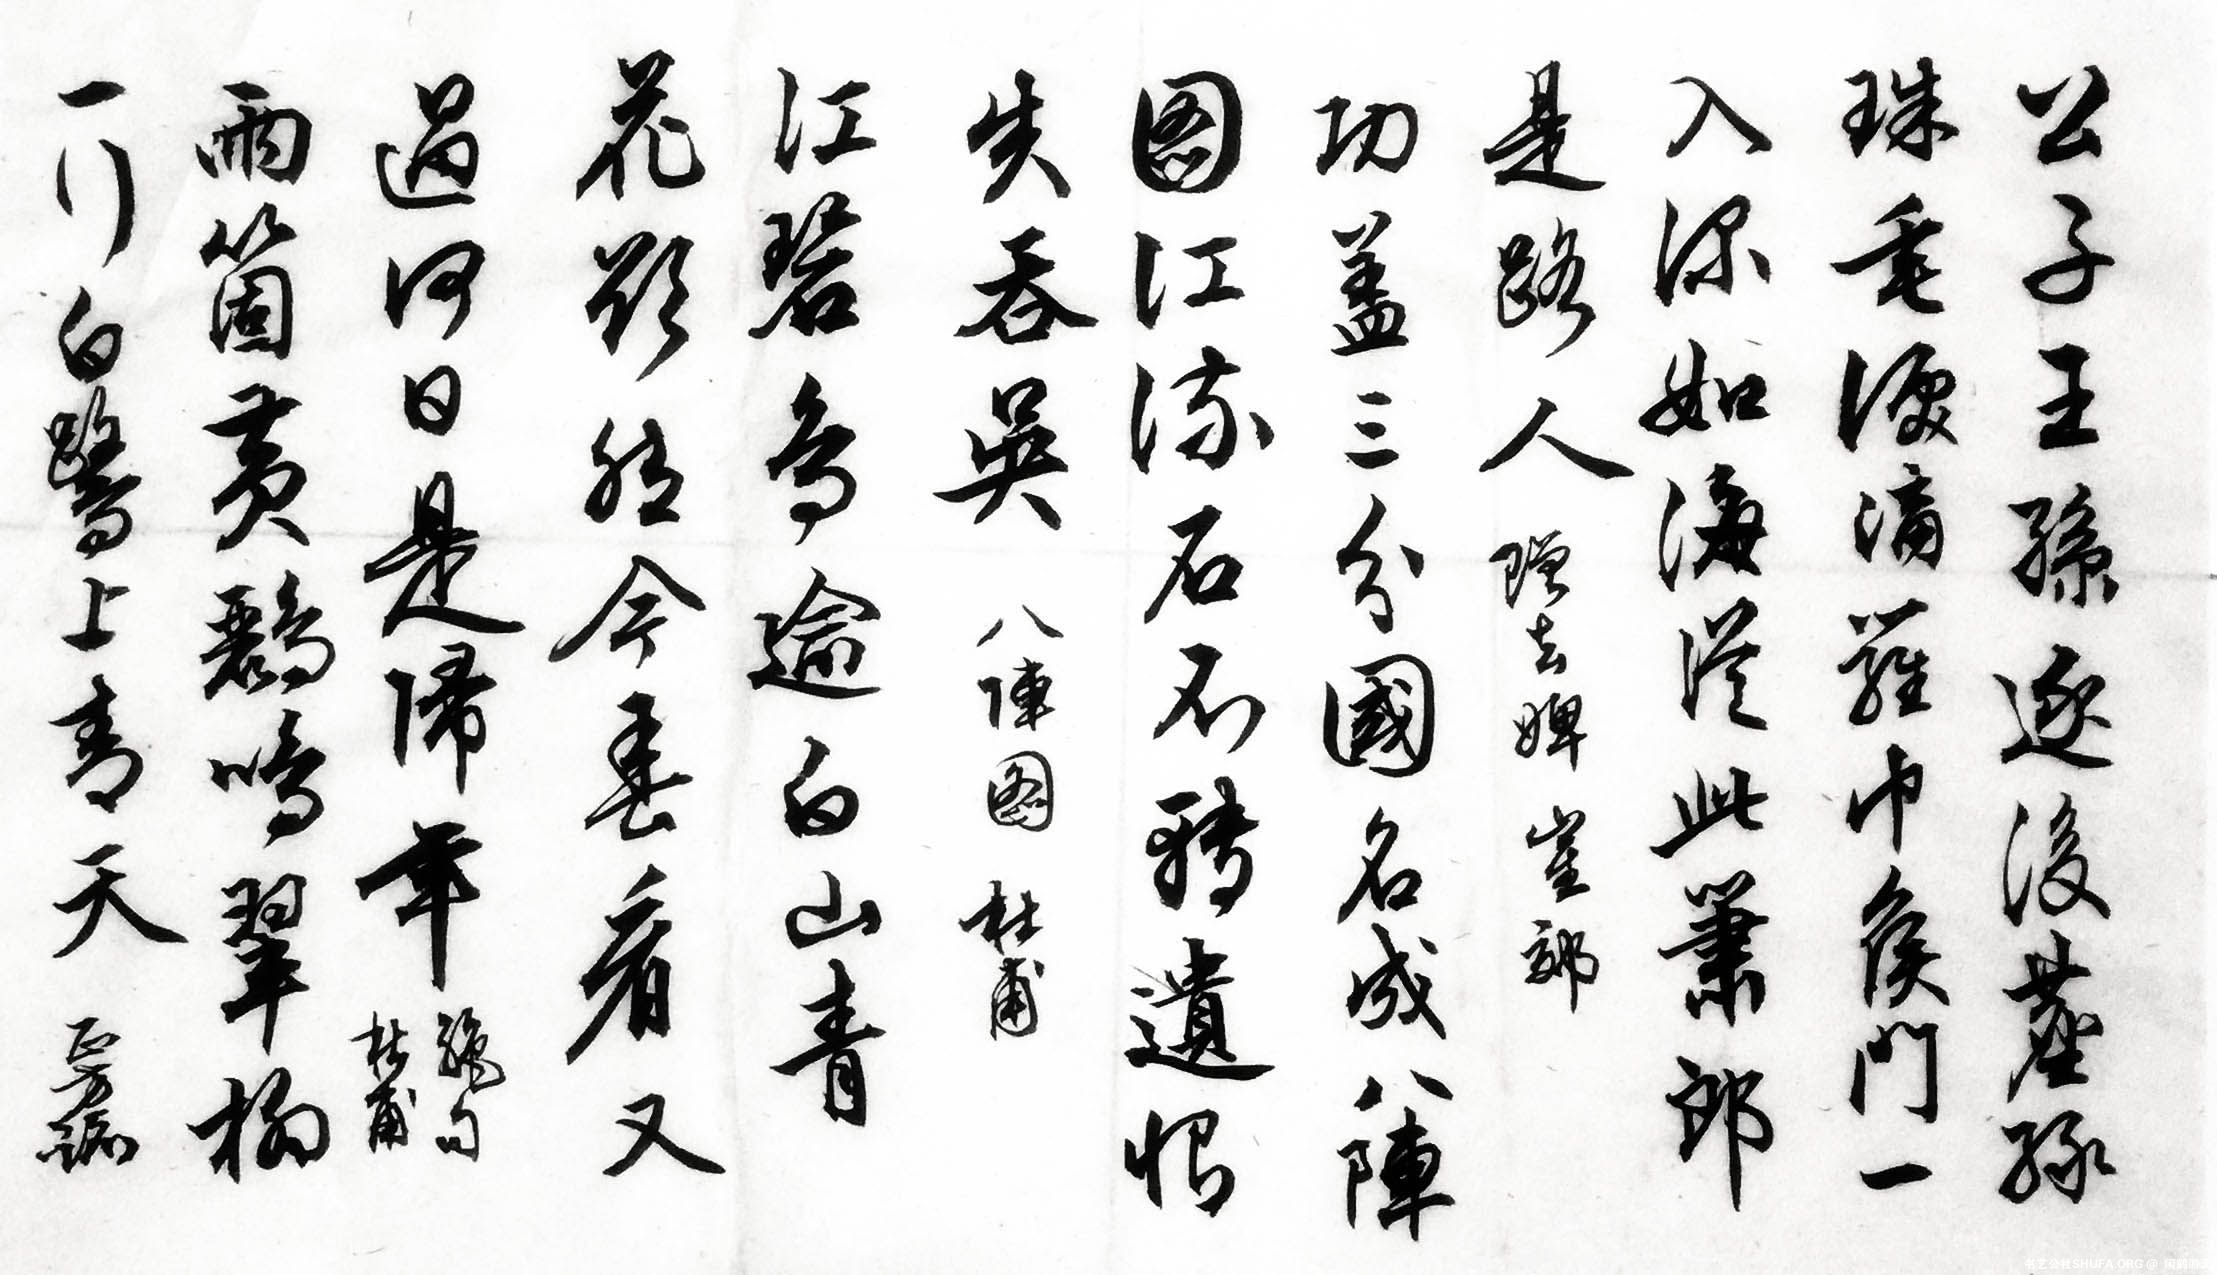 公子王孫逐後塵綠
珠垂淚滴羅巾侯門一
入深如海從此蕭郎
是路人 贈去婢 崔郊
功盖三分國名成八陣
图江流石不轉遺恨
失吞吳 八陣图 杜甫
江碧鳥逾白山青
花欲然今春看又
過何日是歸年 絕句
杜甫
兩箇黃鸝鳴翠柳
一行白鷺上青天
书艺公社SHUFA.ORG @